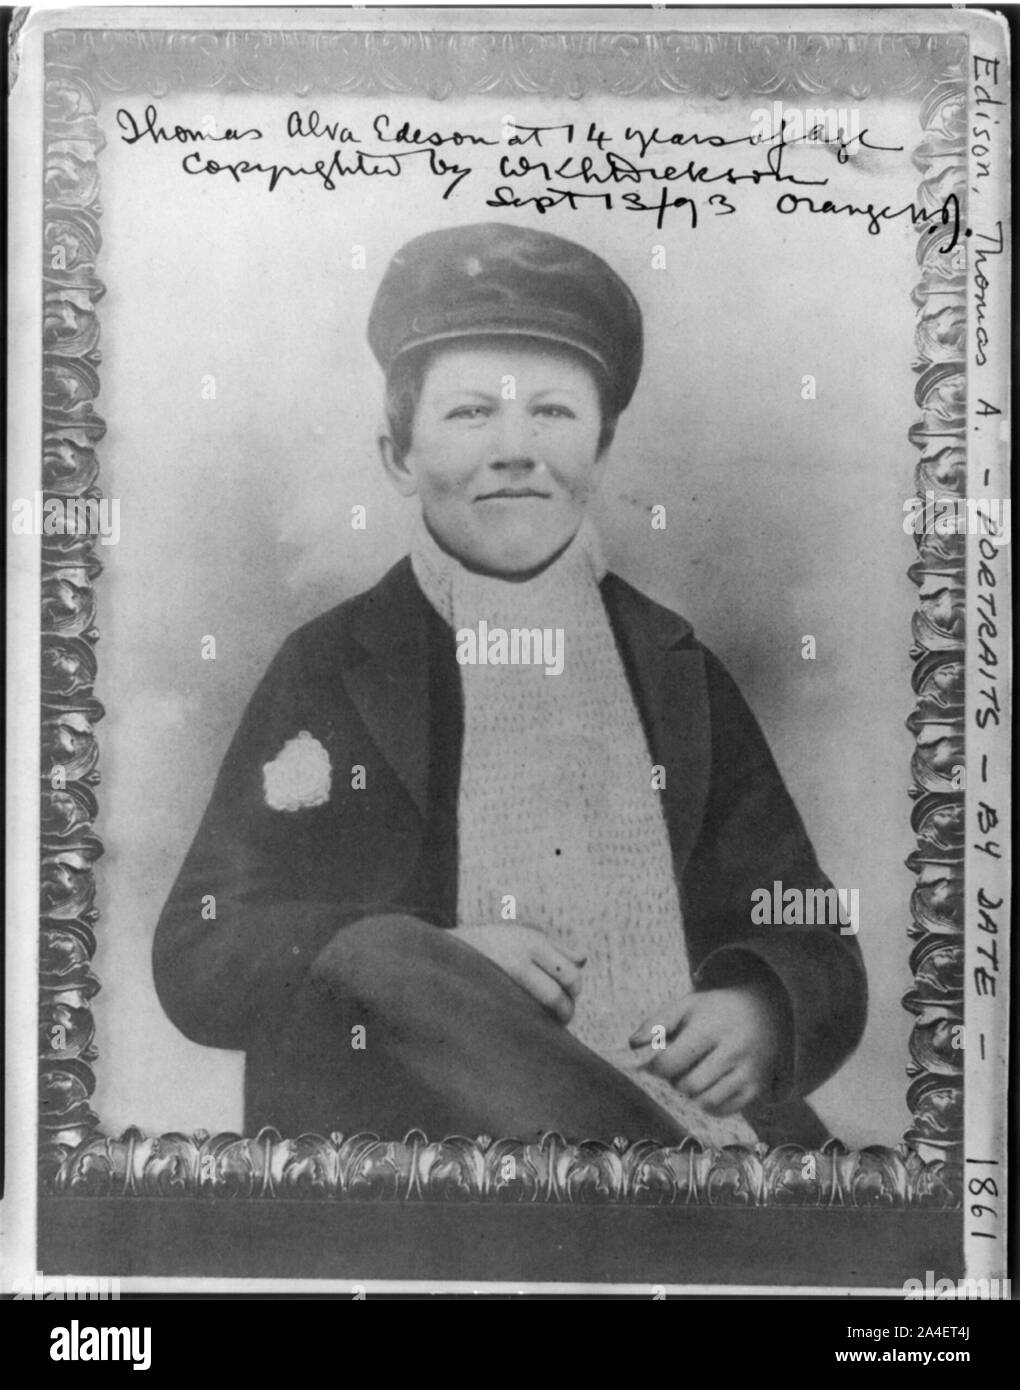 Thomas Alva Edeson at 14 years of age
Copyrighted by WKLDickson
Sept 13/93 Orange N.J.
Edison, Thomas A. - PORTRAITS - BY DATE - 1861
alamy
a
alamy
Image ID: 2A4ET4J
www.alamy.com